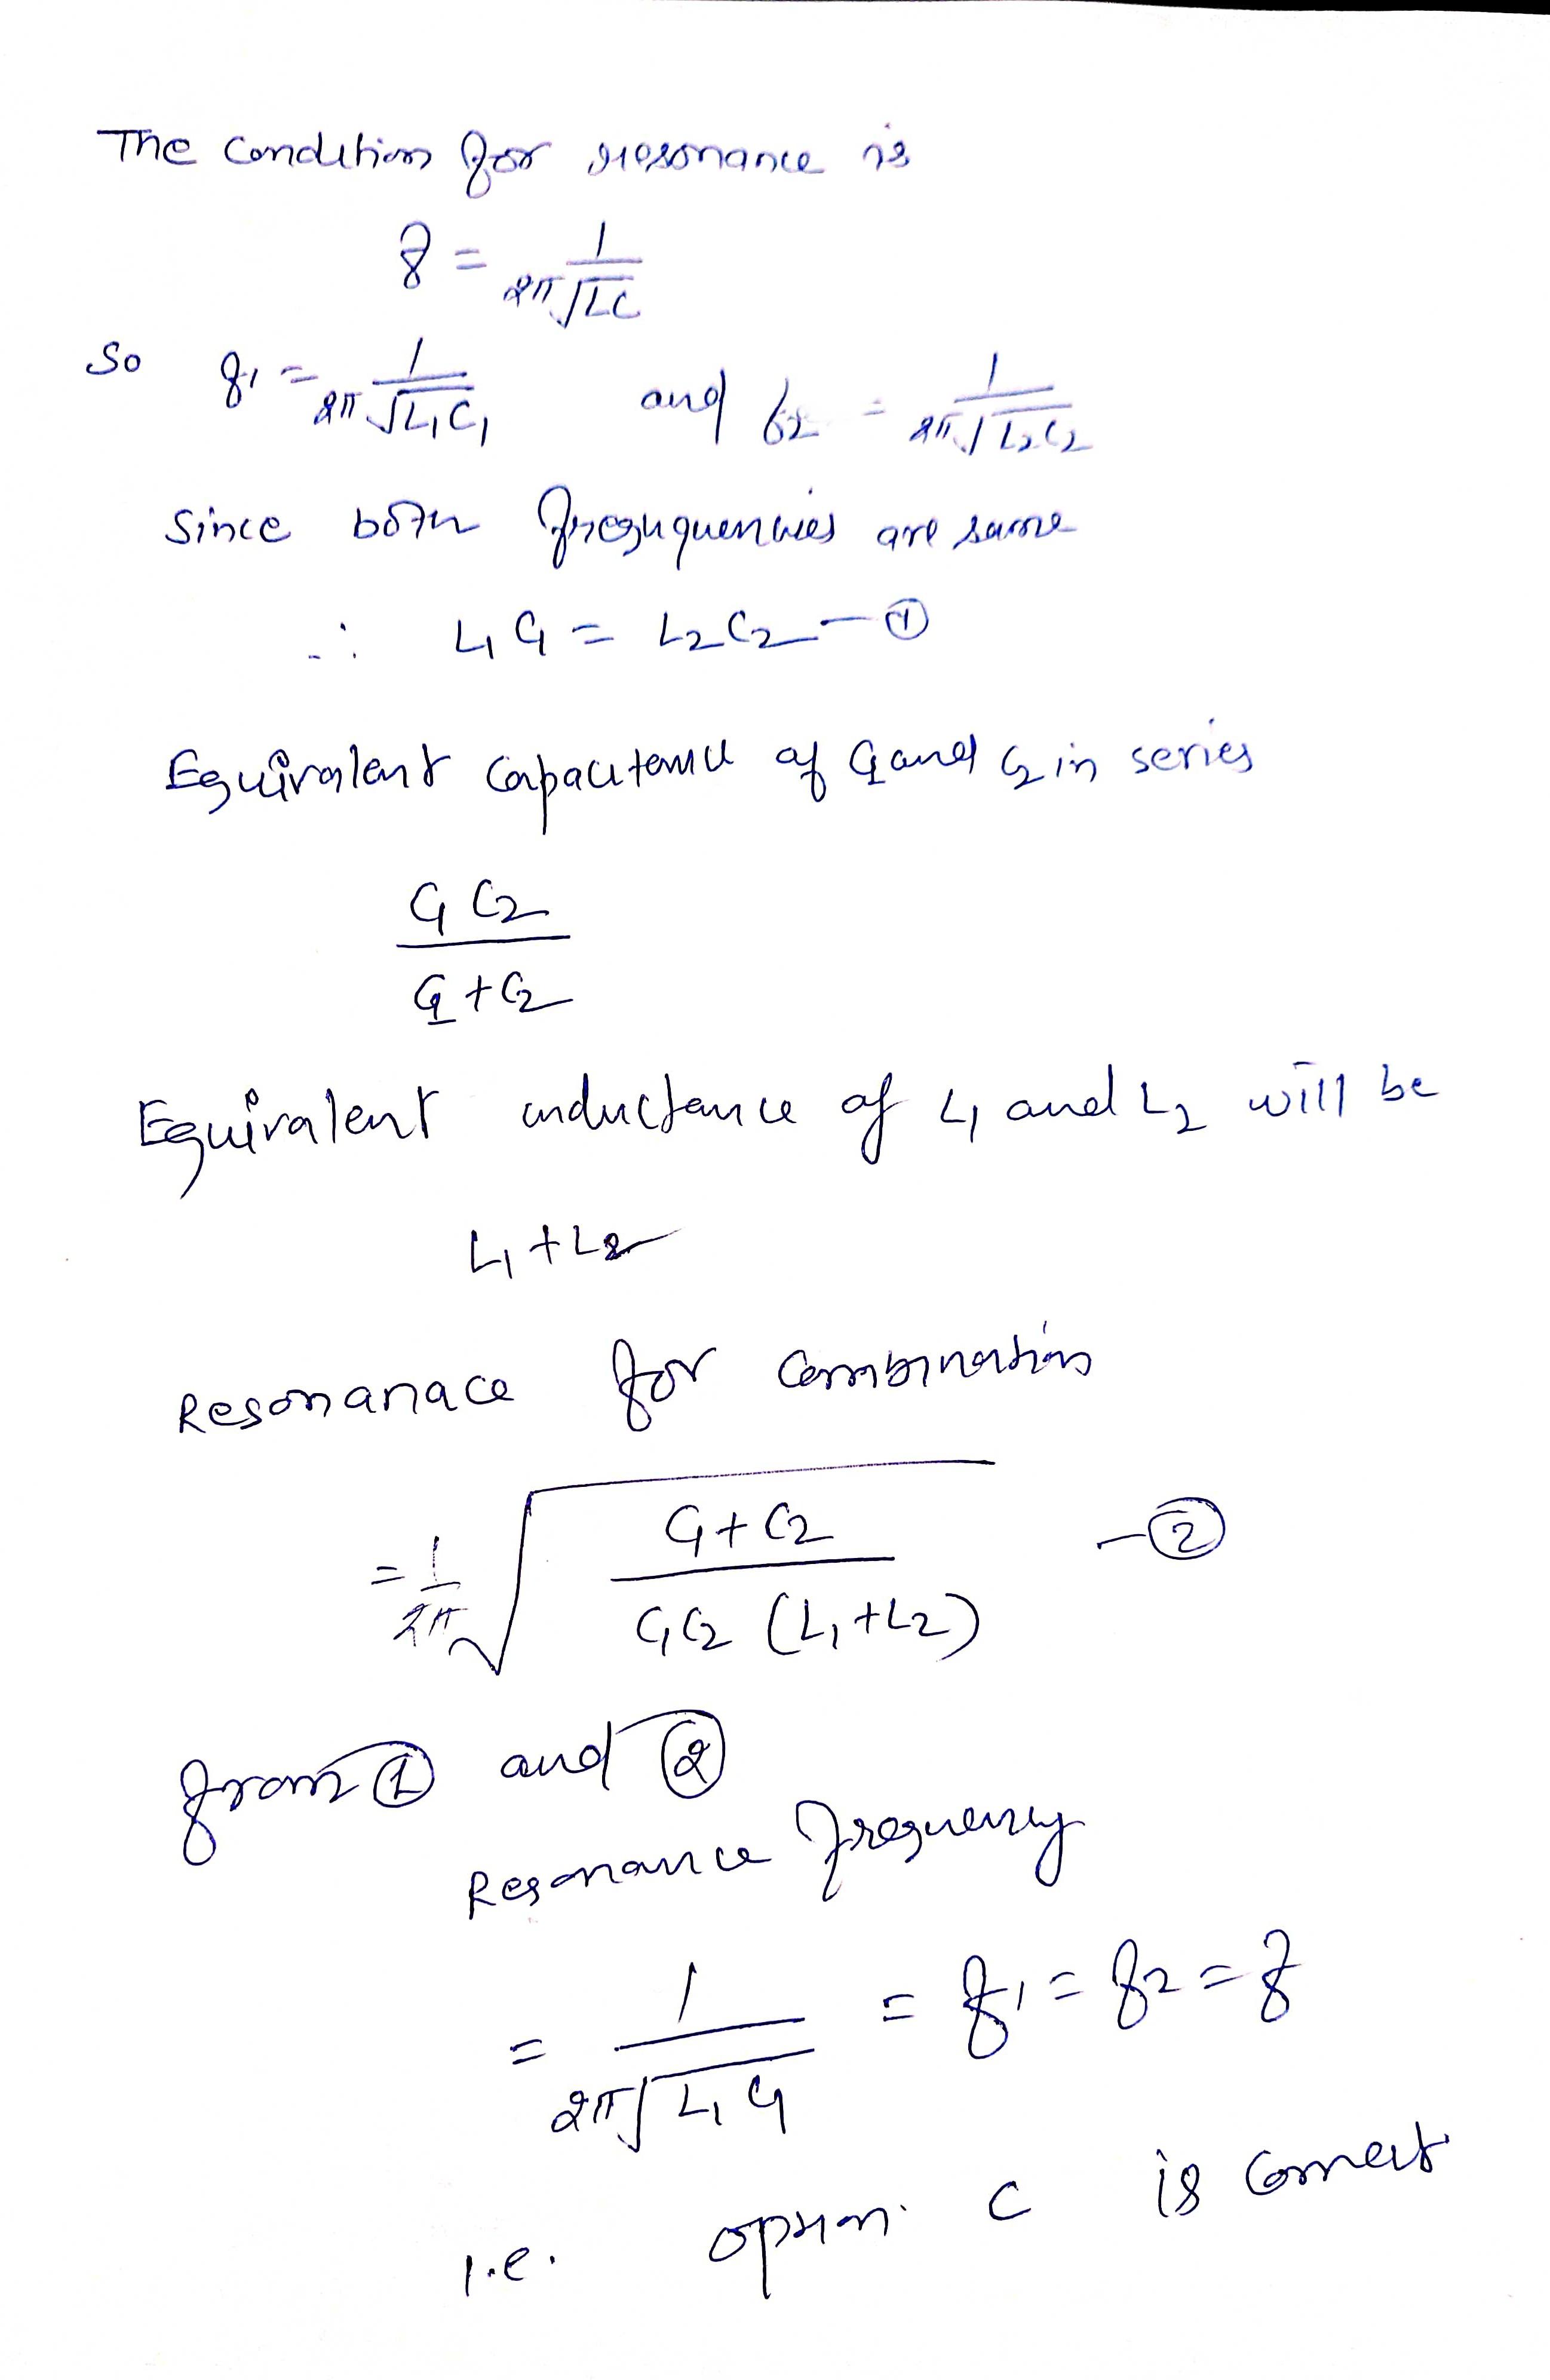 The condition for resonance is
f = 1 / 2π√LC
So f1 = 1 / 2π√L1C1 and f2 = 1 / 2π√L2C2
Since both freququencies are same
∴ L1C1 = L2C2 — ①
Equivalent capacitance of C1 and C2 in series
C1C2 / C1+C2
Equivalent inductance of L1 and L2 will be
L1+L2
Resonanace for combination
= 1/2π √(C1+C2 / C1C2 (L1+L2)) — ②
from ① and ②
Resonance frequency
= 1 / 2π√L1C1 = f1 = f2 = f
i.e. option C is correct